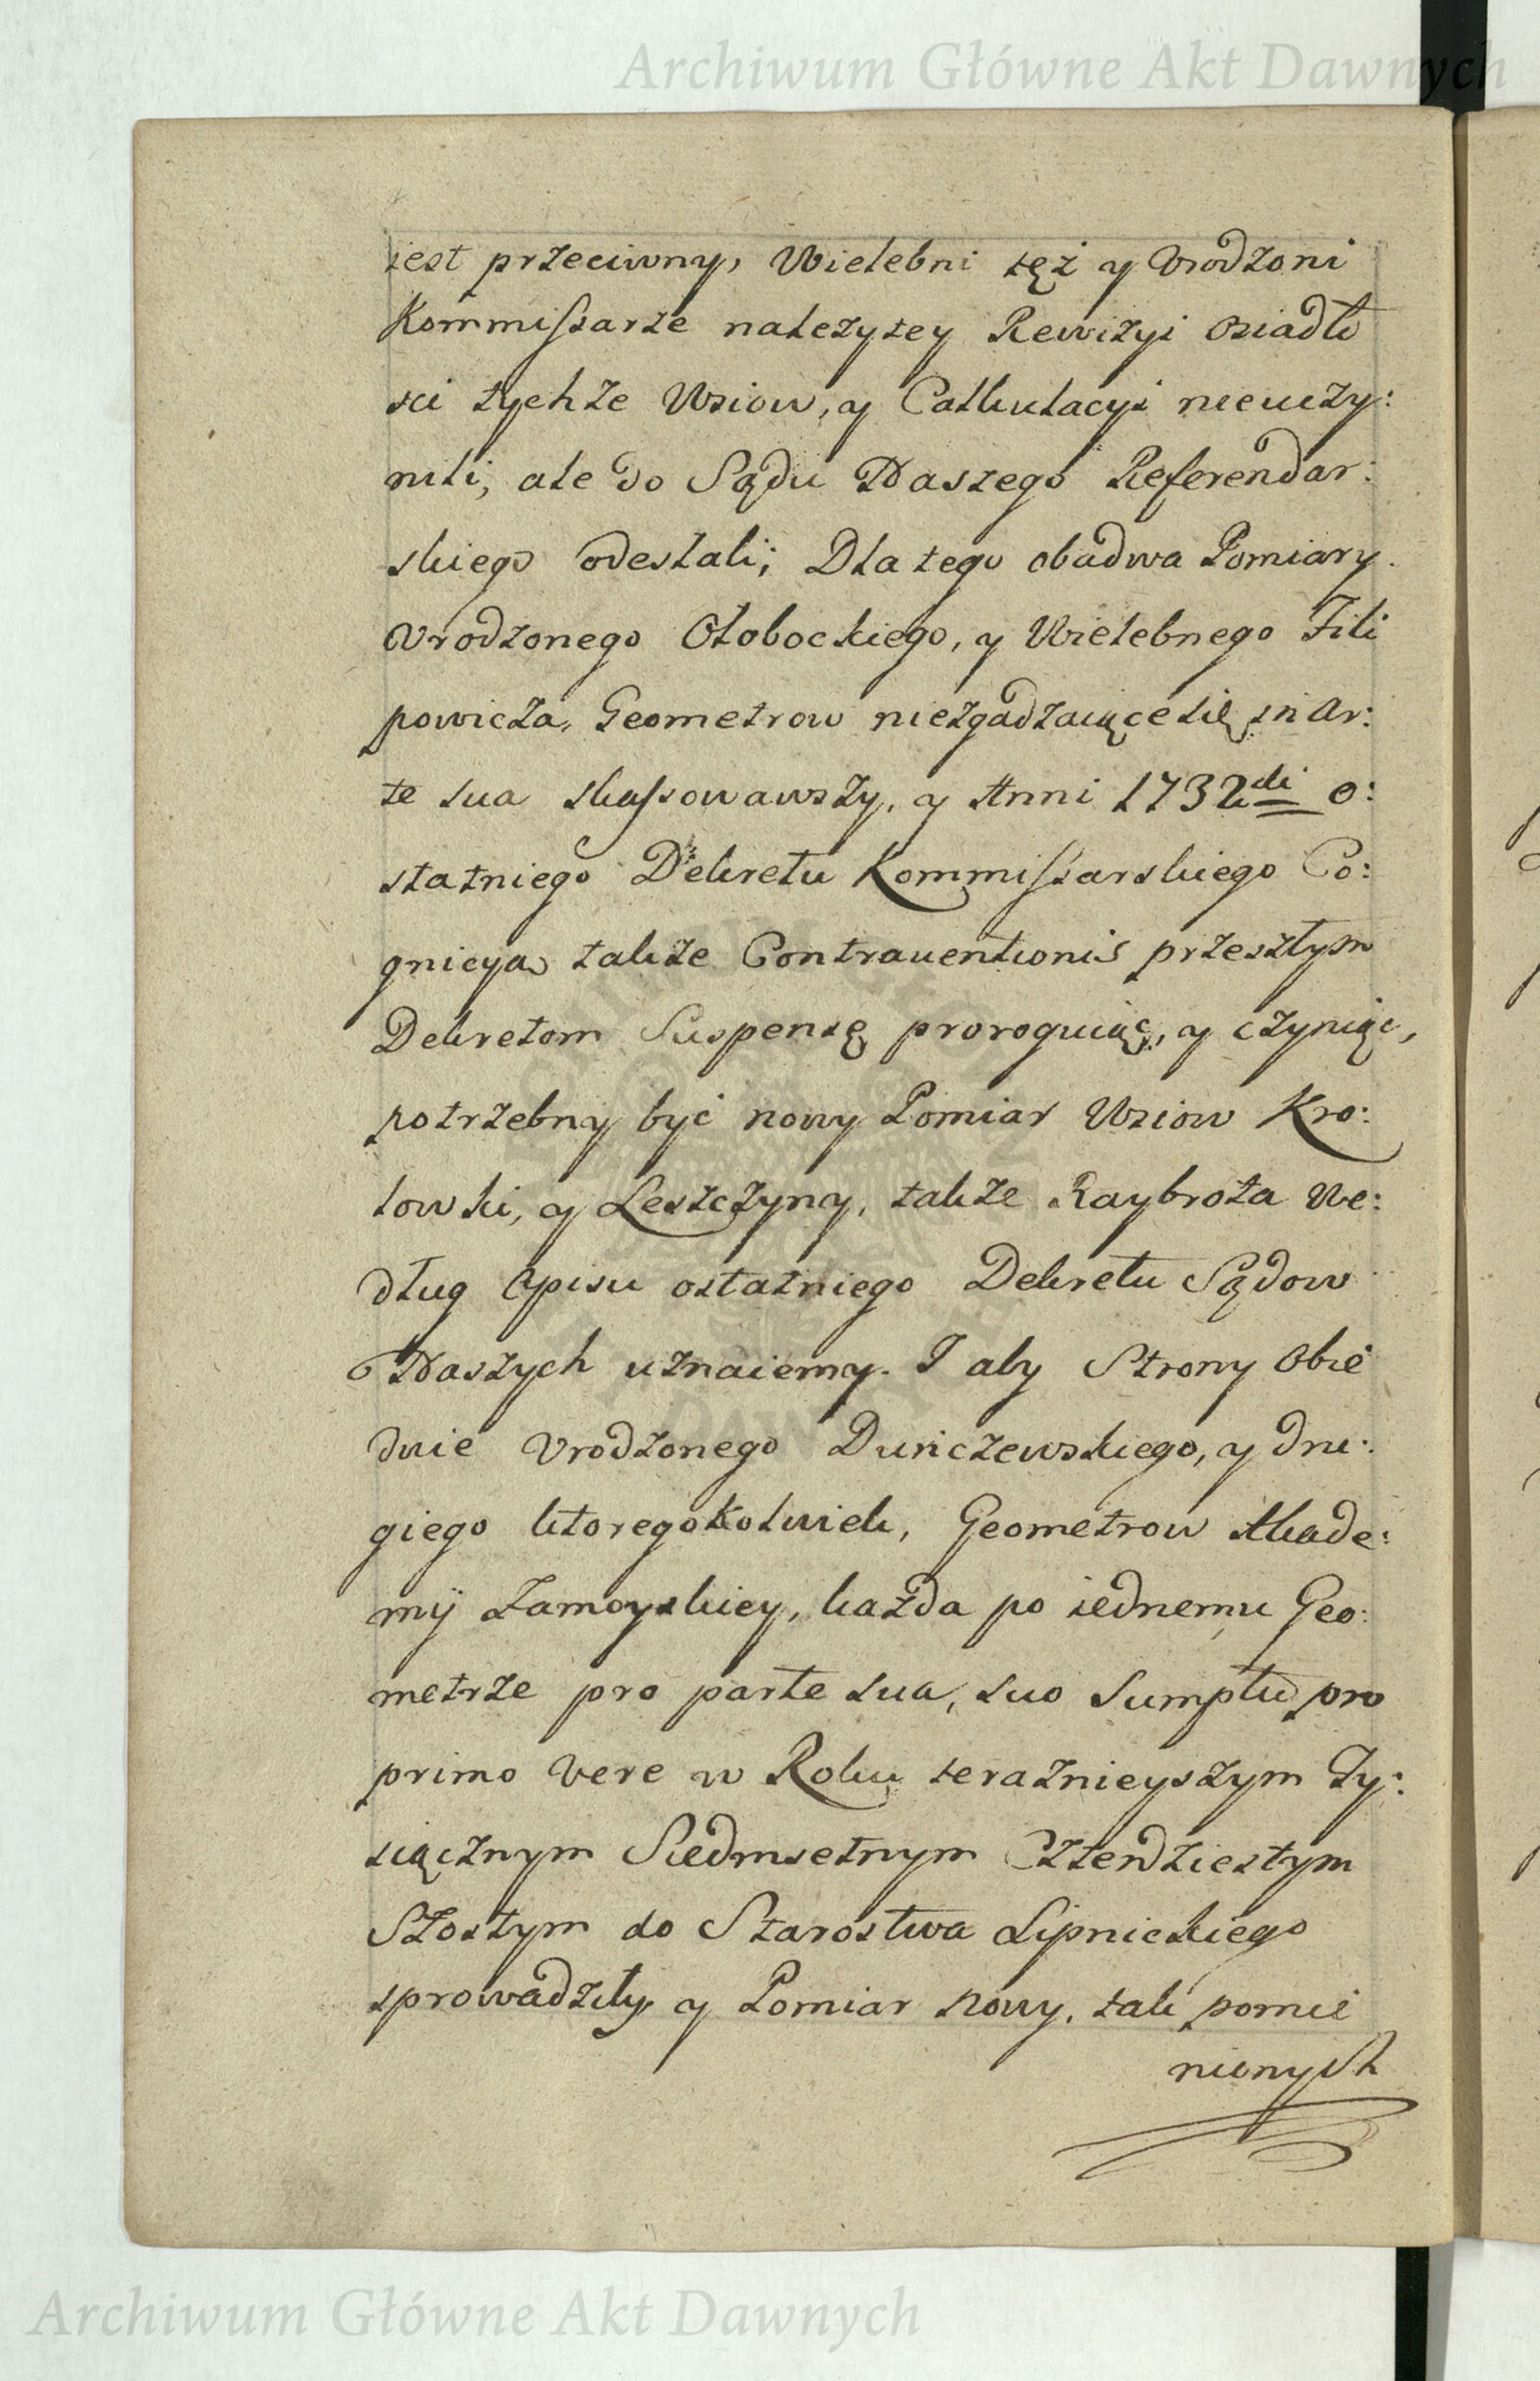 Archiwum Główne Akt Dawnych
iest przeciwny, Wielebni też y Vrodzoni
Kommissarze należytey Rewizyi Osiadło
sci tychże Wsiow, y Calkulacyi nieuczy:
nili, ale do Sądu Naszego Referendar:
skiego odesłali; Dla tego obadwa Pomiary
Vrodzonego Ołobockiego, y Wielebnego Fili
powicza, Geometrow niezgadzaiące się in Ar:
te sua skassowawszy, y Anni 1732di o:
statniego Dekretu Kommissarskiego Co:
gnicyą także Contraventionis przeszłym
Dekretom Suspensę proroguiąc, y czyniąc,
potrzebny być nowy Pomiar Wsiow Kro:
lowki, y Leszczyny, także Raybrota we:
dług Opisu ostatniego Dekretu Sądow
Naszych uznaiemy. I aby Strony Obie
dwie Vrodzonego Duńczewskiego, y dru:
giego ktoregokolwiek, Geometrow Akade:
mÿ Zamoyskiey, każda po iednemu Geo:
metrze pro parte sua, suo Sumptu pro
primo Vere w Roku terażnieyszym Ty:
siącznym Siedmsetnym Czterdziestym
Szostym do Starostwa Lipnickiego
sprowadziły y Pomiar nowy, tak pomie
nionych
Archiwum Główne Akt Dawnych